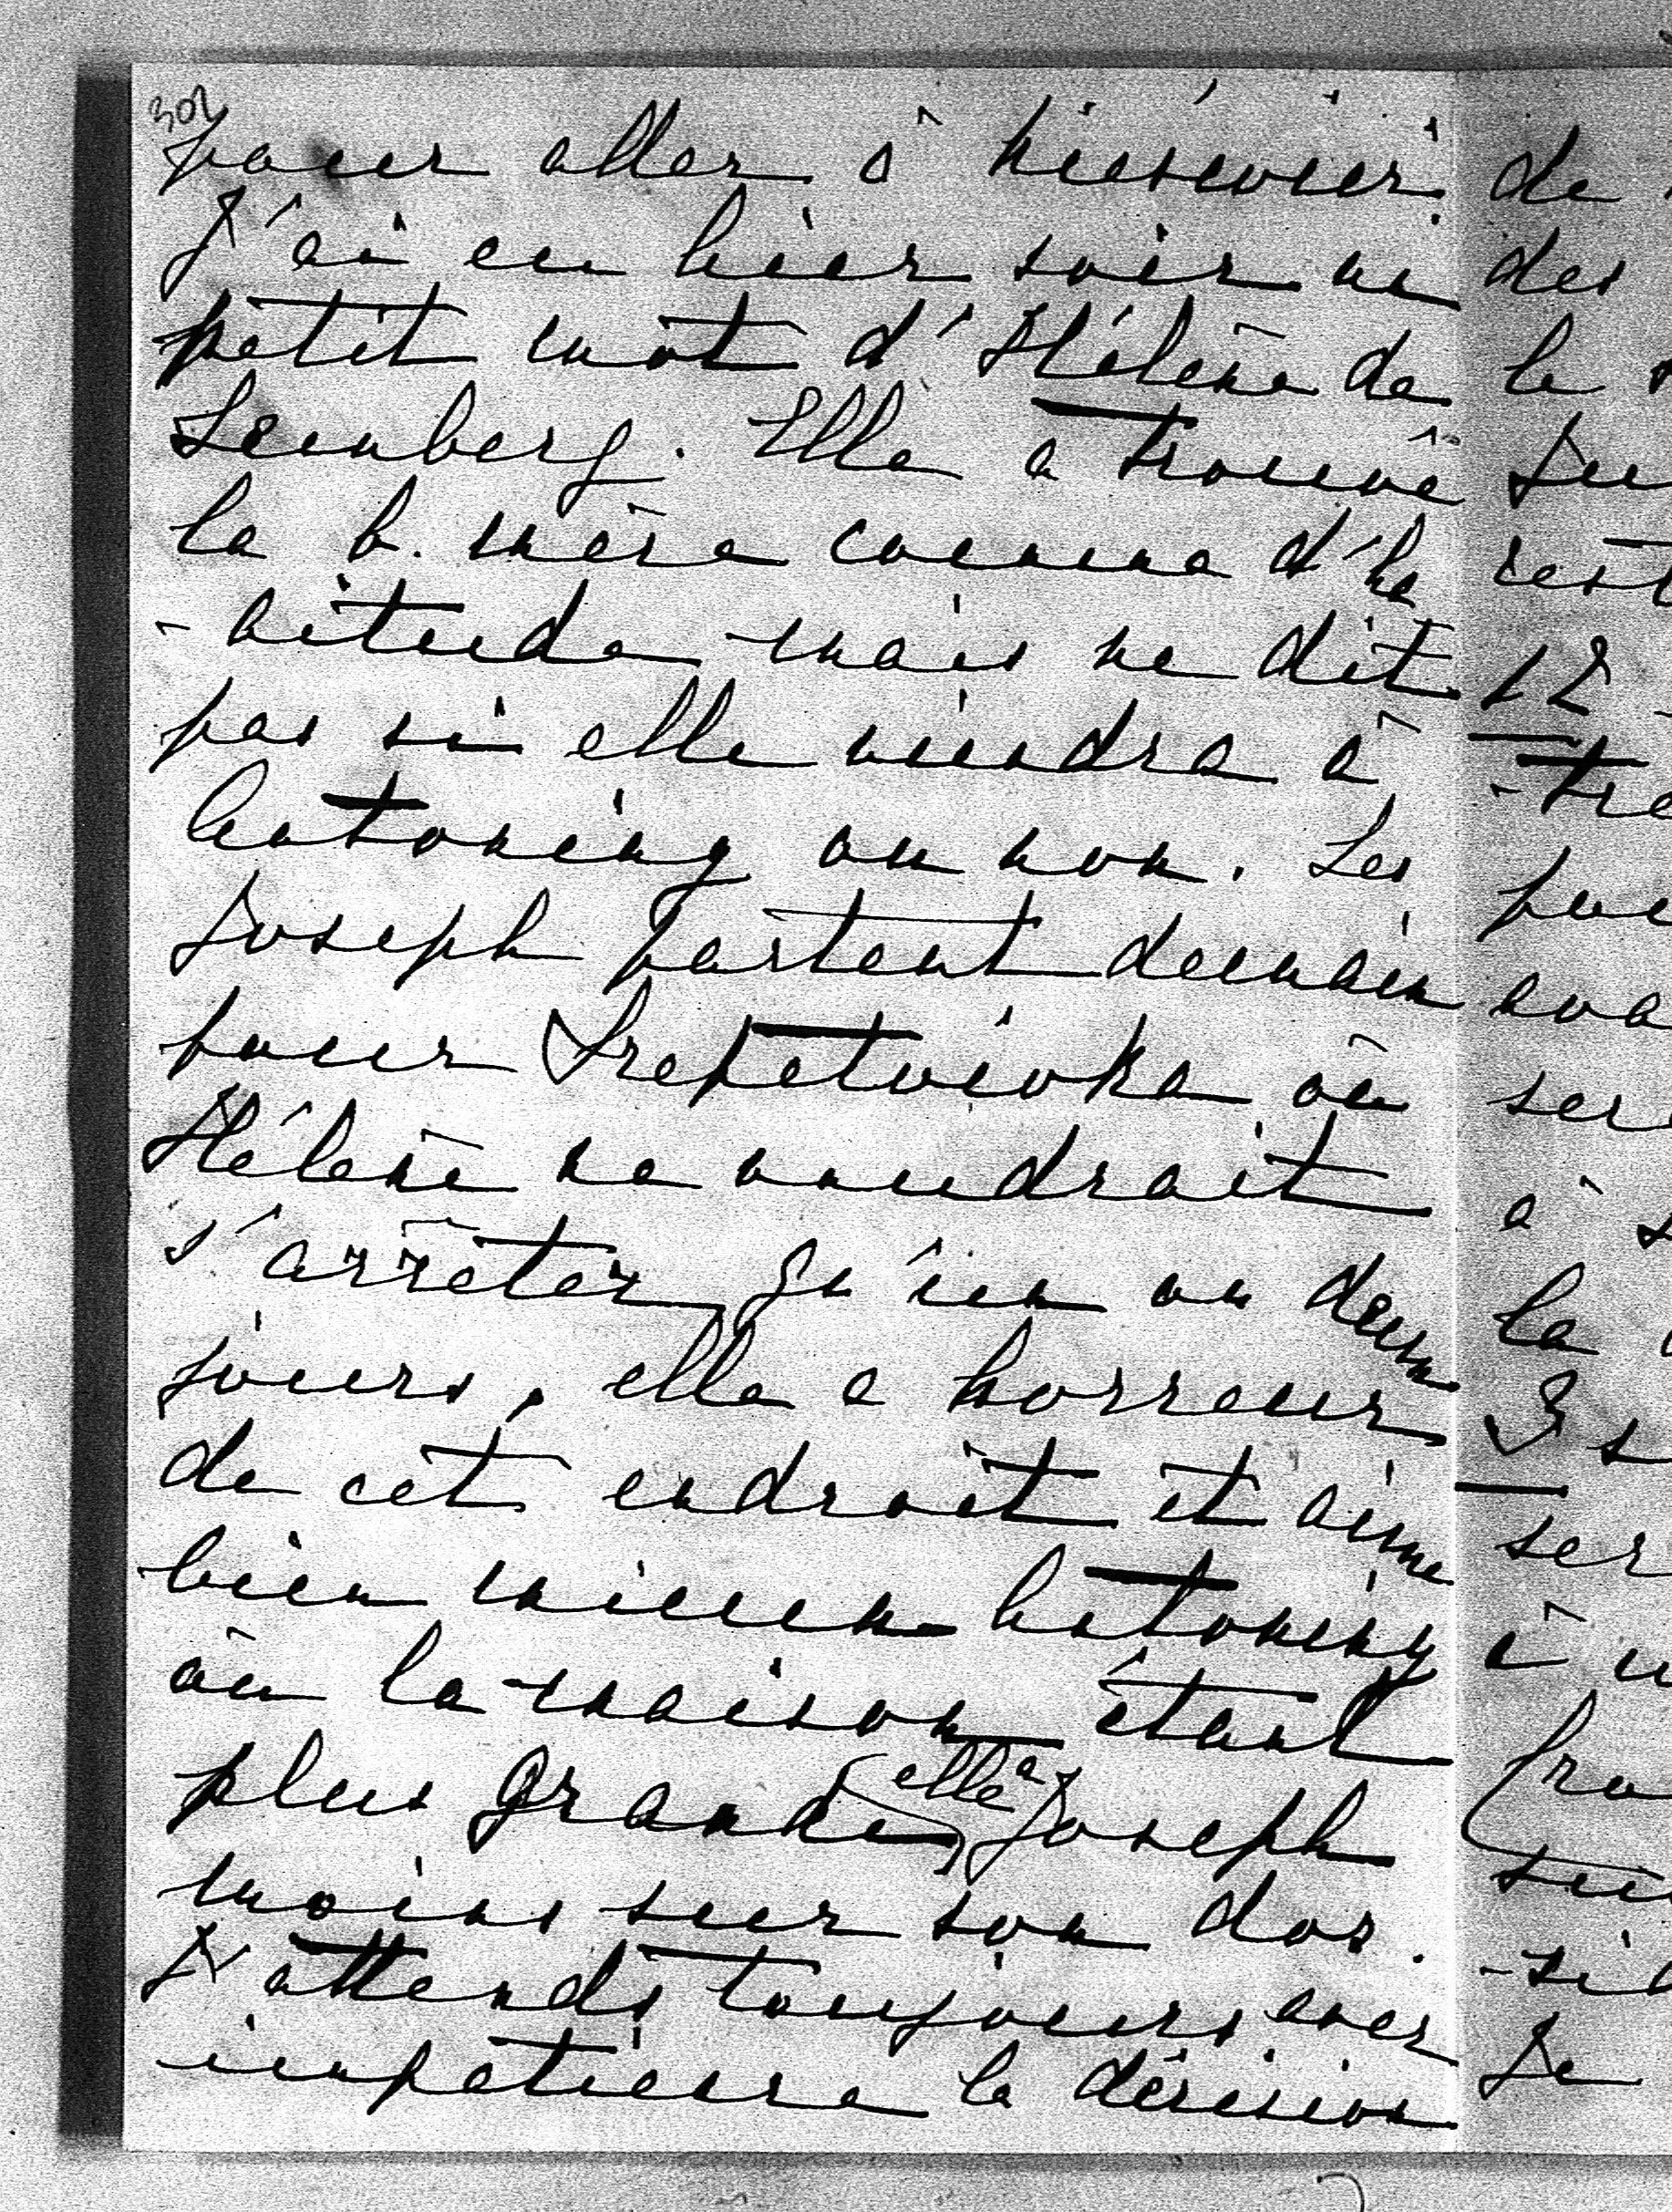 302
pour aller à
J'ai eu hier soir un
petit mot d'Hélène de
Lemberg. Elle a trouvé
la b. mère comme d'ha
-bitude mais ne dit
pas si elle viendra à
Antoniny ou non. Les
Joseph partent demain
pour Szepetówka où
Hélène ne voudrait
s'arrêter qu'un ou deux
jours, elle a horreur
de cet endroit et aime
bien mieux Antoniny
où la maison étant
plus grande, elle a Joseph
moins sur son dos.
J'attends toujours avec
impatience la décision
de
des
le
12
à
la
ser
Je